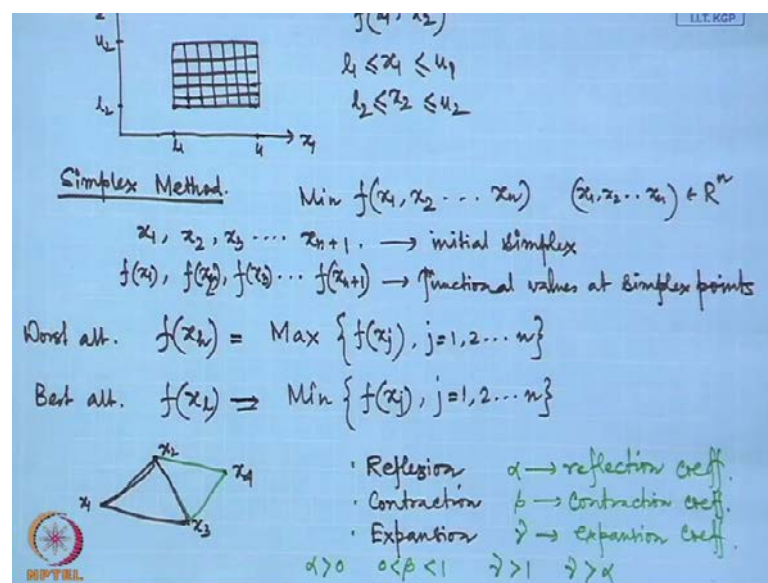 f(x₁, x₂)
I.I.T. KGP
u₂
l₁ ≤ x₁ ≤ u₁
l₂ ≤ x₂ ≤ u₂
l₂
l₁ u x₁
Simplex Method. Min f(x₁, x₂ ... xₙ) (x₁, x₂ .. xₙ) ∈ Rⁿ
x₁, x₂, x₃ .... xₙ₊₁. → initial simplex
f(x₁), f(x₂), f(x₃) ... f(xₙ₊₁) → functional values at simplex points
Worst alt. f(xₕ) = Max {f(xⱼ), j=1,2...n}
Best alt. f(xₗ) = Min {f(xⱼ), j=1,2...n}
x₂
x₁ x₄
x₃
· Reflexion α → reflection coeff.
· Contraction β → Contraction coeff.
· Expansion γ → expansion coeff.
α>0 0<β<1 γ>1 γ>α
NPTEL